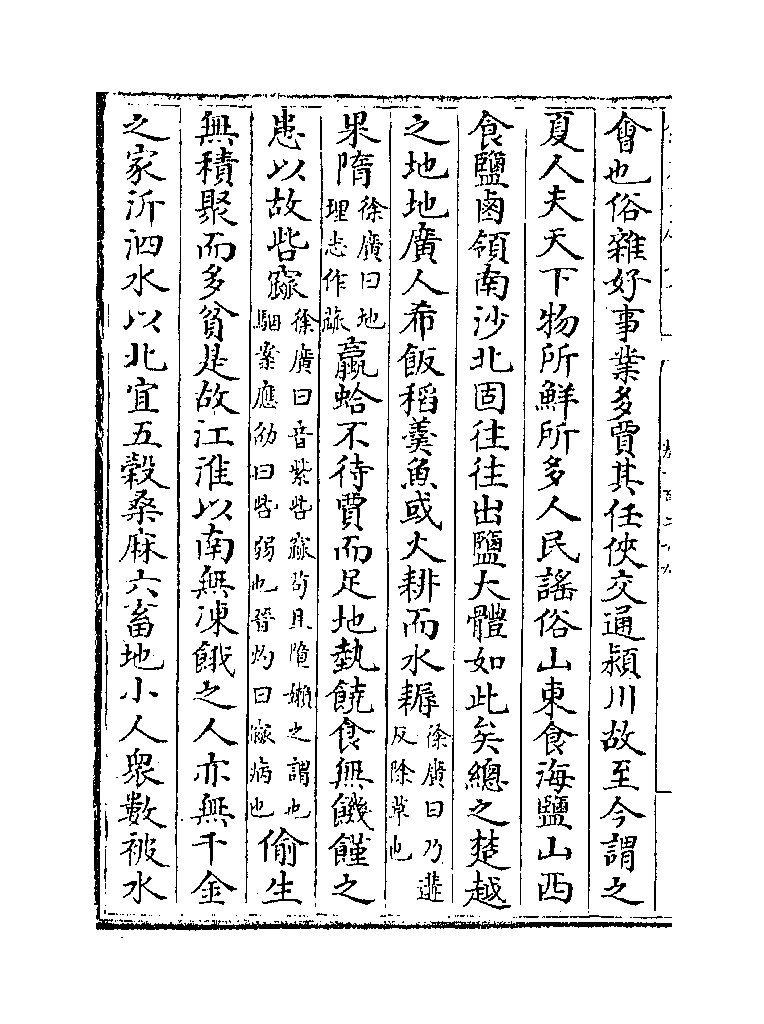 會也俗雜好事業多賈其任俠交通潁川故至今謂之
夏人夫天下物所鮮所多人民謠俗山東食海鹽山西
食鹽鹵領南沙北固往往出鹽大體如此矣總之楚越
之地地廣人希飯稻羹魚或火耕而水耨徐廣曰乃遘反除草也
果隋徐廣曰地理志作蓏蠃蛤不待賈而足地埶饒食無饑饉之
患以故呰窳徐廣曰音紫呰窳苟且隋嬾之謂也駰案應劭曰呰弱也晉灼曰窳病也偷生
無積聚而多貧是故江淮以南無凍餓之人亦無千金
之家沂泗水以北宜五穀桑麻六畜地小人眾數被水